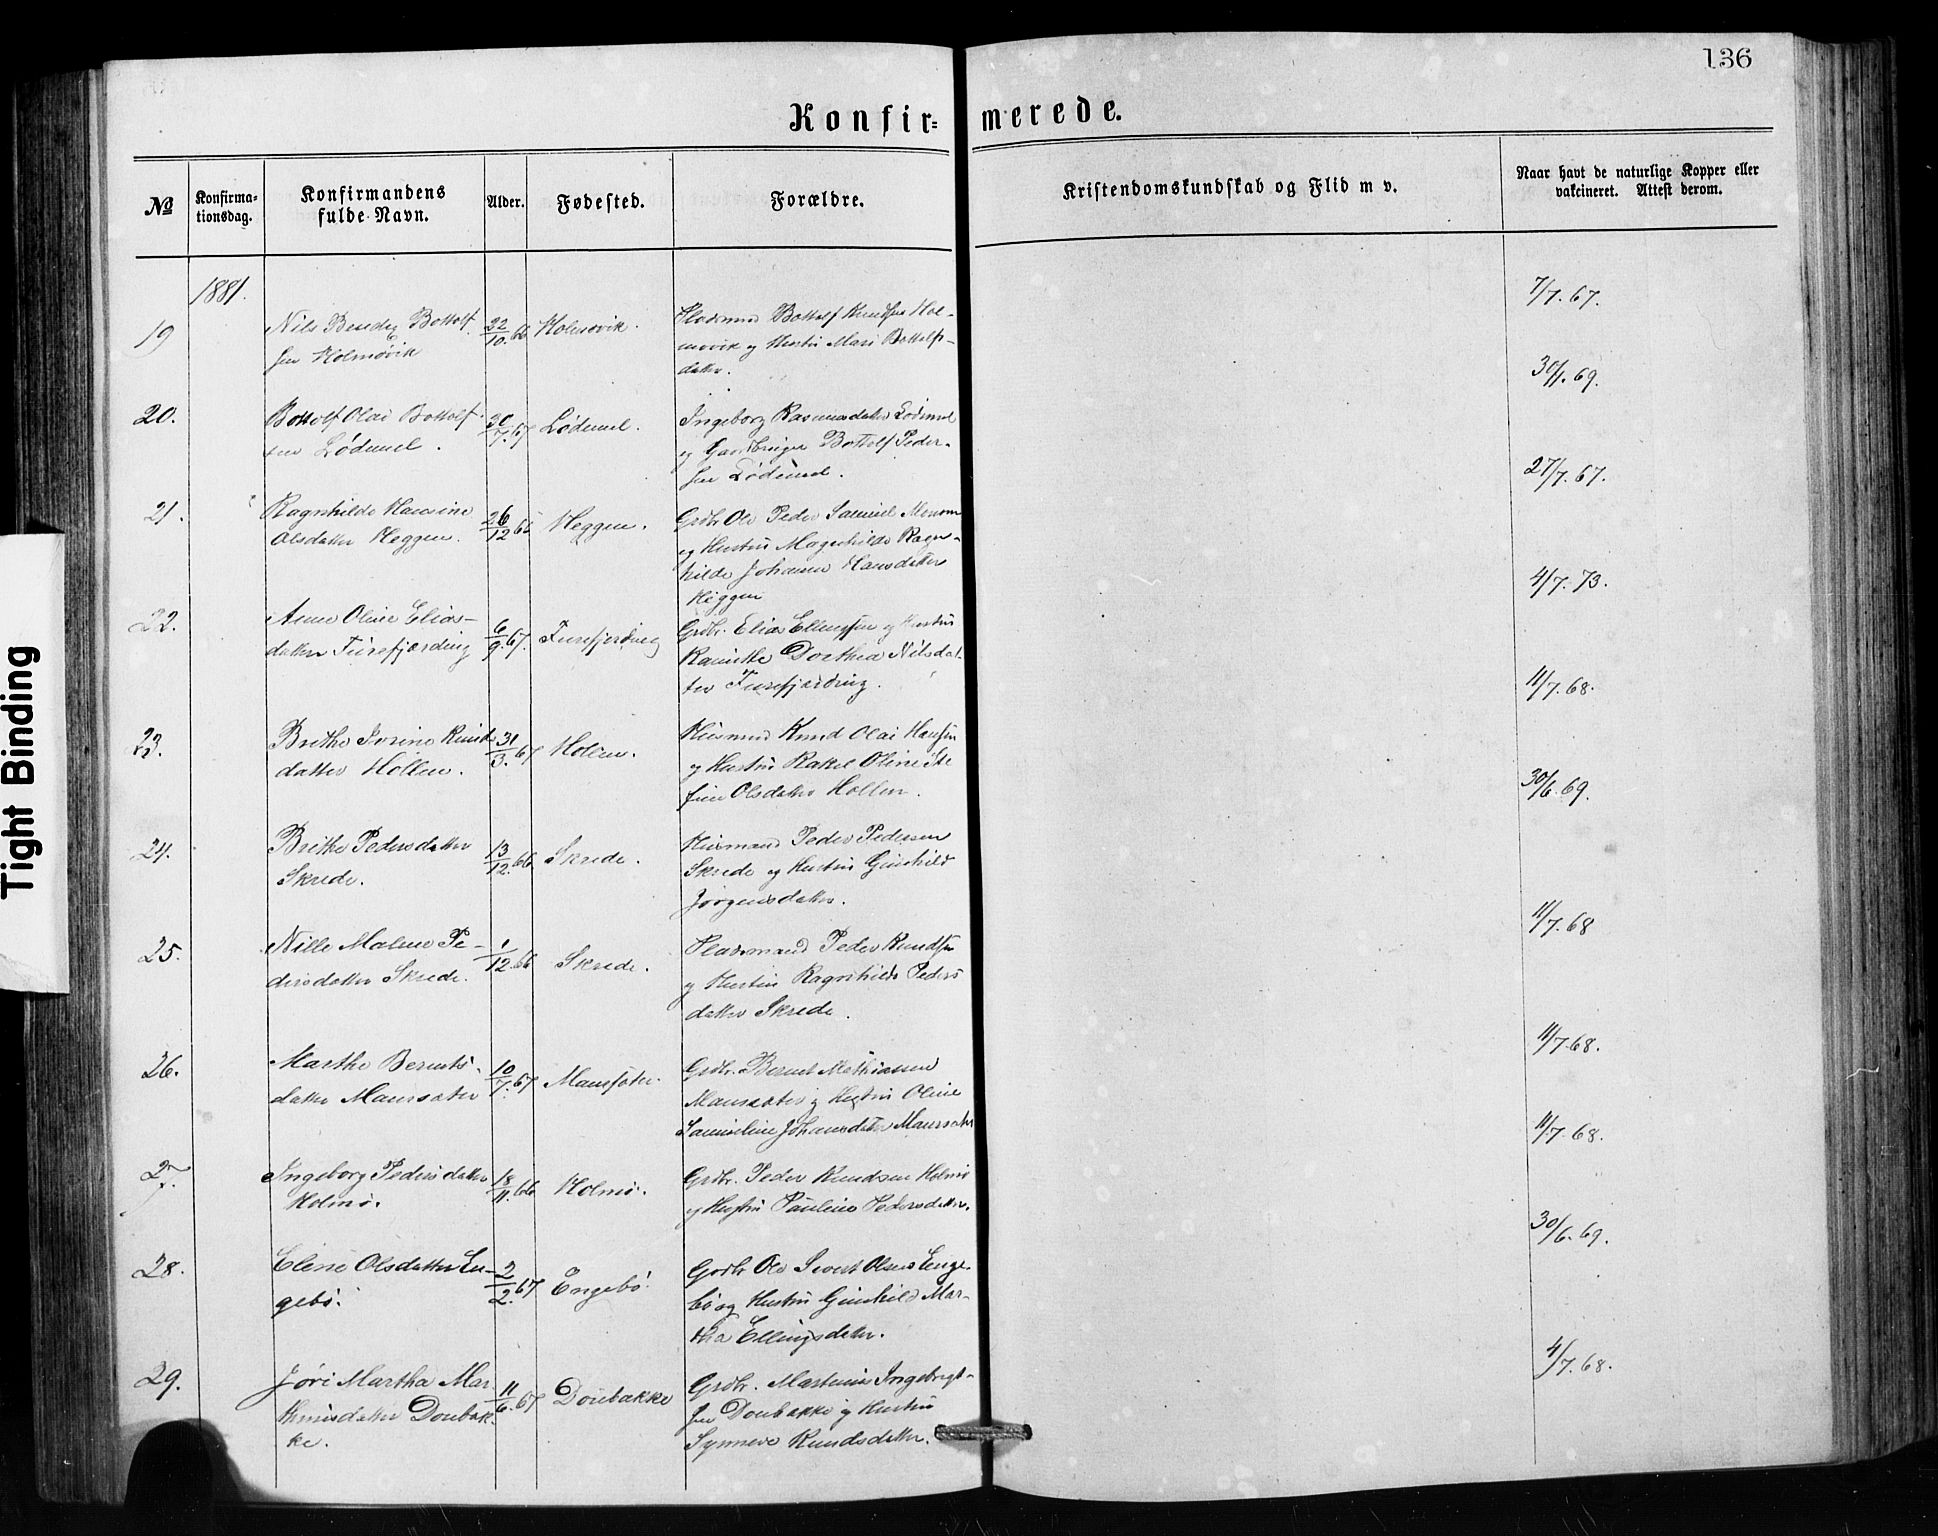 136
Konfir= merede.
№
Konfirma-
tionsdag.
Konfirmandens
fulde Navn.
Alder.
Fødested.
Forældre.
Kristendomskundskab og Flid m v.
Naar havt de naturlige Kopper eller
vakcineret. Attest derom.
1881.
7/7. 67.
19
Nils Bottolf
sen Holmøvik
22/10. 66
Holmøvik.
Bottolf Knudsen Hol-
møvik og Hustru Mari Bottolfs-
datter.
30/1. 69.
20.
Bottolf Olai Bottolf
sen Lødemel.
30/7. 67
Lødemel.
Ingeborg Rasmusdatter Lødemel
og Bottolf Peder-
sen Lødemel.
27/7. 67.
21.
Ragnhilde Hansine
Olsdatter Heggen.
26/12 66
Heggen.
Grdbr Ole Peder Samuel
og Hustru Magnhilde Ragn-
hilde Johanne Hansdatter
Heggen
4/7. 73.
22.
Anne Oline Elias-
datter Furefjæding
6/9. 67.
Grdbr. Elias Ellingsen og Hustru
Dorthea Nilsdat-
ter
11/7. 68.
23.
Brithe Josine Knuds
datter Hollen.
31/3. 67
Hollen.
Husmand Knud Olai Hansen
og Hustru Rakel Oline Ste
fine Olsdatter Hollen.
30/6. 69.
24.
Brithe Pedersdatter
Skrede.
13/12. 66
Skrede.
Husmand Peder Pedersen
Skrede og Hustru Gunhild
Jörgensdatter.
11/7. 68
25.
Nille Malene Pe-
dersdatter Skrede.
1/12. 66
Skrede.
Peder Knudsen
og Hustru Ragnhilde Peders
datter Skrede.
11/7. 68.
26.
Marthe Bernts-
datter Maursæter
10/7. 67
Maursæter.
Grdbr. Bernt Mathiassen
Maursæter og Hustru Oline
Samueline Johansdatter Maursæter
11/7. 68.
27.
Ingeborg Pedersdatter
Holmø.
18/11. 66
Holmø.
Grdbr. Peder Knudsen Holmø
og Hustru Pauline Pedersdatter.
30/6. 69.
28.
Eline Olsdatter En-
gebø.
2/2. 67
Engebø.
Grdbr Ole Sivert Olsen Enge-
bø og Hustru Gunhild Mar-
tha Ellingsdatter.
4/7. 68.
29.
Jøri Martha Mar-
thinusdatter Doubak-
ke.
11/6. 67
Doubakke
Grdbr. Martinus Ingebrigt-
sen Doubakke og Hustru
Synneve Knudsdatter.
Tight Binding